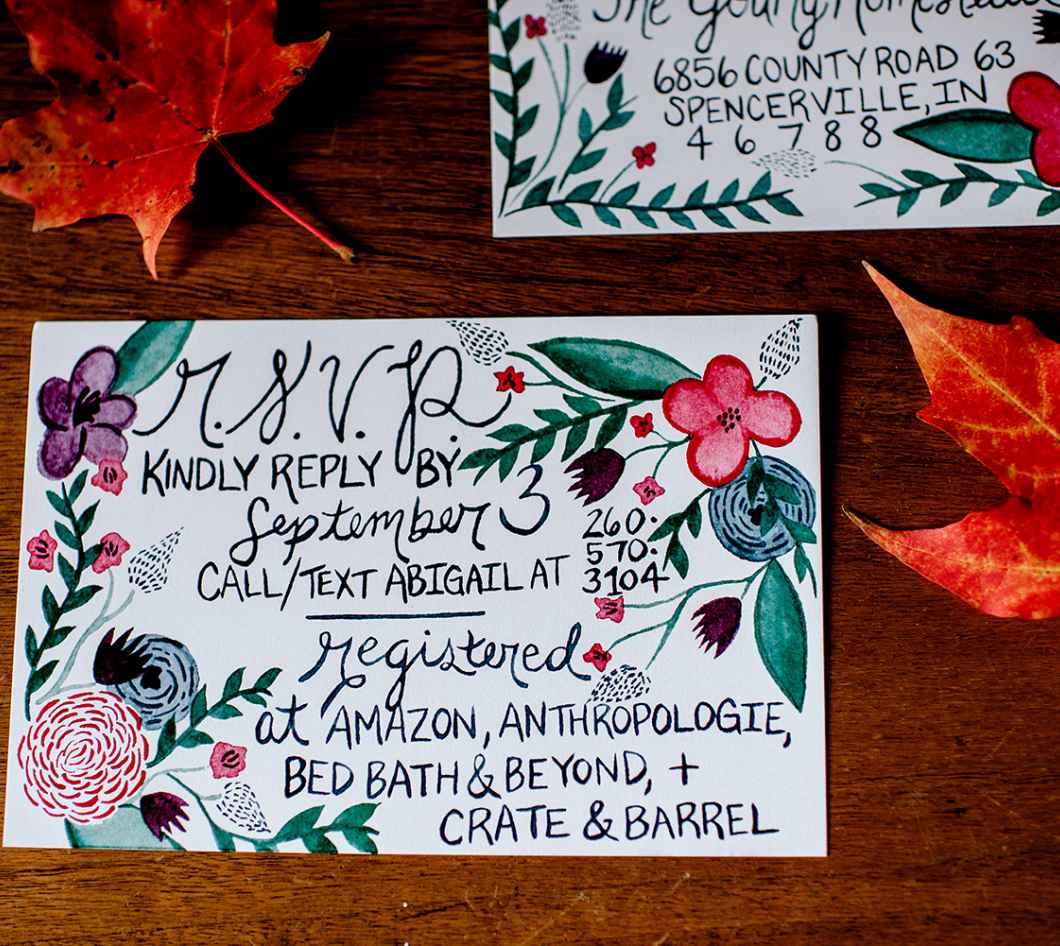 The Young Homestead
6856 COUNTY ROAD 63
SPENCERVILLE, IN
46788
r.s.v.p.
KINDLY REPLY BY
September 3
CALL/TEXT ABIGAIL AT
260.
570.
3104
registered
at AMAZON, ANTHROPOLOGIE,
BED BATH & BEYOND, +
CRATE & BARREL